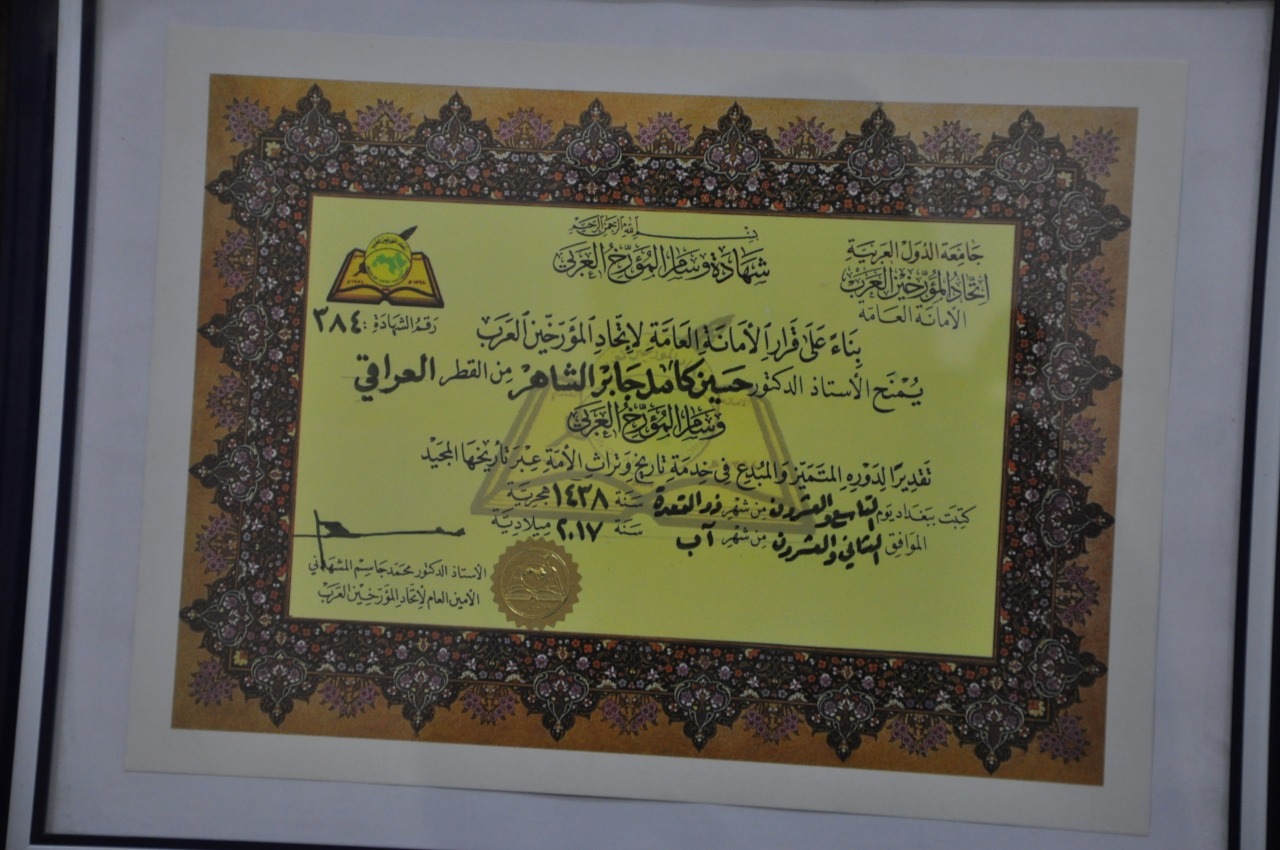 بسم الله الرحمن الرحيم
جَامِعَة الدّوَل العَرَبيَّة
إتّحادُ المُؤرخينَ العَرَبْ
الأمَانَة العَامَّة
شَهَادَة وسَامِ المُؤرّخُ العَرَبيّ
رَقمُ الشّهَادَة : ٣٨٤
بِنَاءً عَلىٰ قَرار الأمَانَةِ العَامَّةِ لإتّحادِ المُؤَرّخينَ العَرَبْ
يُمْنَح الأستاذ الدكتور حسين كامل جابر الشاهر مِن القطر العراقي
وسَامِ المُؤرّخُ العَرَبيّ
تَقديرًا لِدَورِهِ المُتَمَيّز وَالمُبدِع في خِدمَةِ تاريخ وَتراثِ الأُمَة عِبرَ تَأريخهَا المَجيد
كتِبَت ببَغداد يَوم التاسع والعشرون مِن شهْر ذو القعدة سَنَة ١٤٣٨ هجريَّة
الموَافِق الثاني والعشرون مِن شهْر آب سَنَة ٢٠١٧ ميلاديَّة
الأستاذ الدكتور محمّد جَاسِم المشهَداني
الأمين العام لإتحاد المؤرّخين العَرَبْ